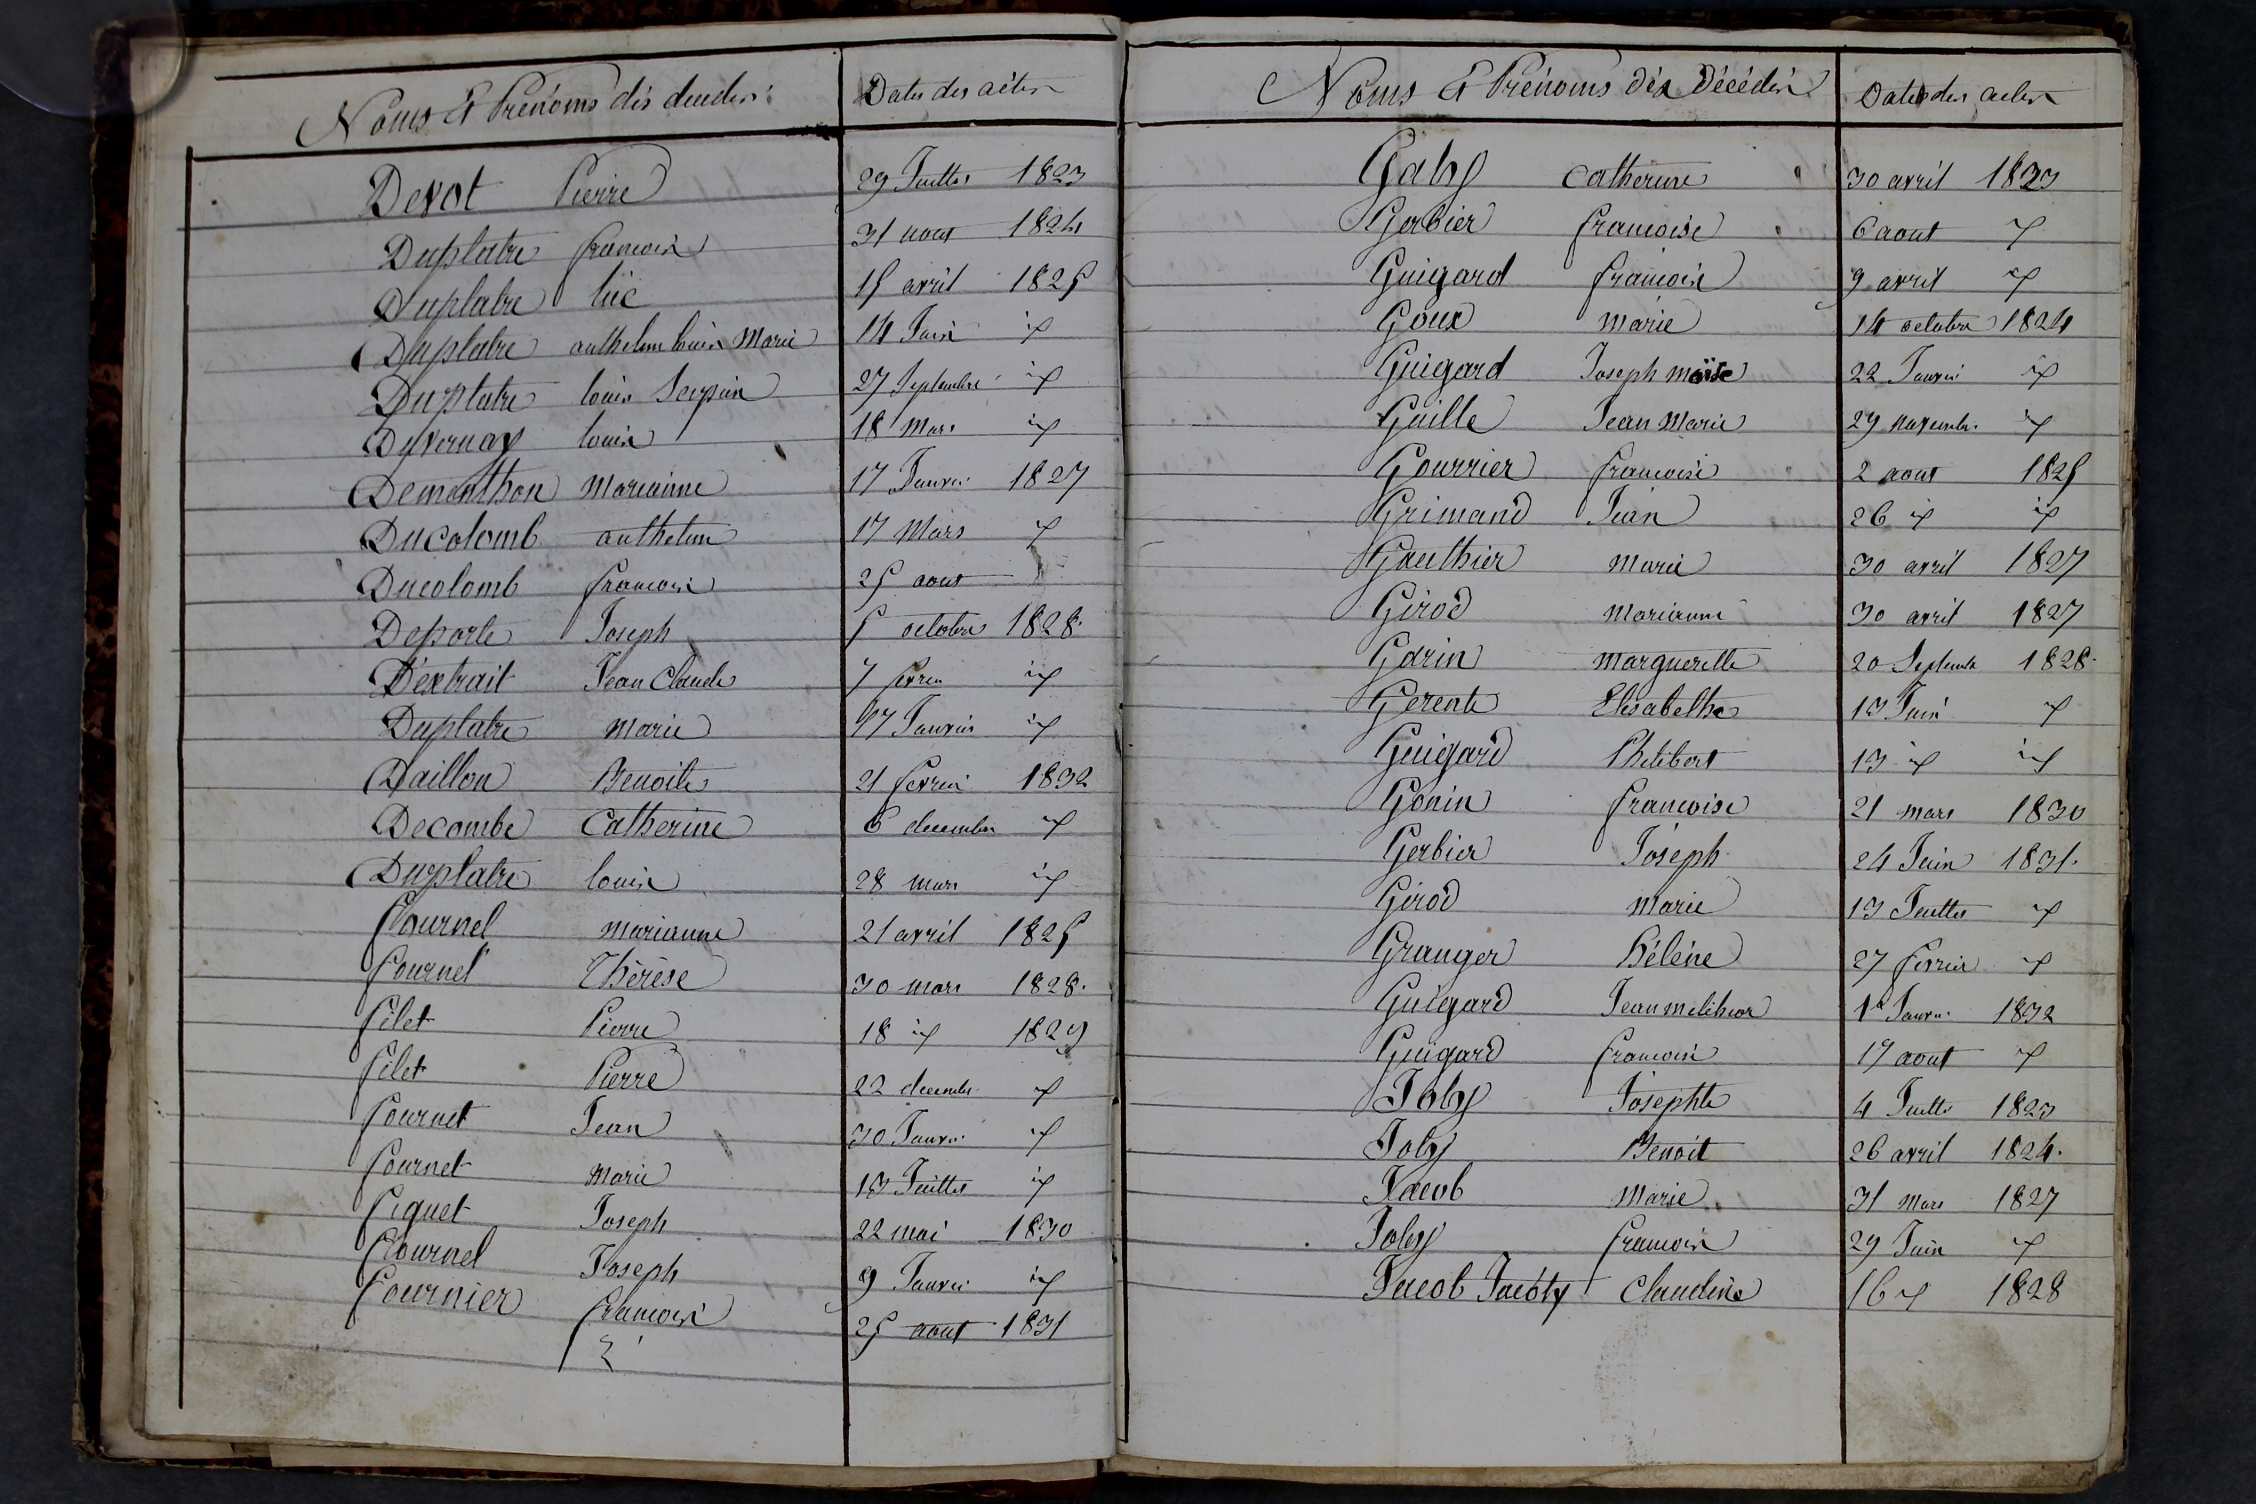 Noms Et Prénoms dès décédés Dates des actes
Devot Pierre 29 Juillet 1823
Duplatre francois 31 aout 1824
Duplatre luc 15 avril 1825
Duplatre anthelme louis Marie 14 Juin id
Duplatre louis 27 Septembre id
Duvernay louis 18 Mars id
Dementhon Marianne 17 Janvier 1827
Ducolomb anthelme 17 Mars id
Ducolomb francois 25 aout
Deporte Joseph 5 octobre 1828
Dextrait Jean Claude 7 fevrier id
Duplatre Marie 17 Janvier id
Daillon Benoite 21 fevrier 1832
Decombe Catherine 6 decembre id
Duplatre louis 28 mars id
fournel marianne 21 avril 1825
fournel Thérèse 30 mars 1828
filet Pierre 18 id 1829
filet Pierre 22 decembre id
fournet Jean 30 Janvier id
fournet Marie 13 Juillet id
fiquet Joseph 22 mai 1830
fournel Joseph 9 Janvier id
fournier francois 25 aout 1831
Noms Et Prénoms dès Décédés Dates des actes
Gaby Catherine 30 avril 1823
Gerbier francoise 6 aout id
Guigard francois 9 avril id
Goux Marie 14 octobre 1824
Guigard Joseph moïse 22 Janvier id
Guille Jean Marie 29 Novembre id
Gourrier francoise 2 aout 1825
Grimand Jean 26 id id
Gauthier Marie 30 avril 1827
Girod Marianne 30 avril 1827
Garin Marguerette 20 Septembre 1828
Gerente Elisabethe 13 Juin id
Guigard Philibert 13 id id
Gonin francoise 21 mars 1830
Gerbier Joseph 24 Juin 1831
Girod Marie 13 Juillet id
Granger hélène 27 fevrier id
Guigard Jean melchior 1er Janvier 1832
Guigard francois 17 aout id
Joly Josephte 4 Juillet 1823
Joly Benoit 26 avril 1824
Jacob Marie 31 Mars 1827
Joly francois 29 Juin id
Jacob Claudine 16 id 1828